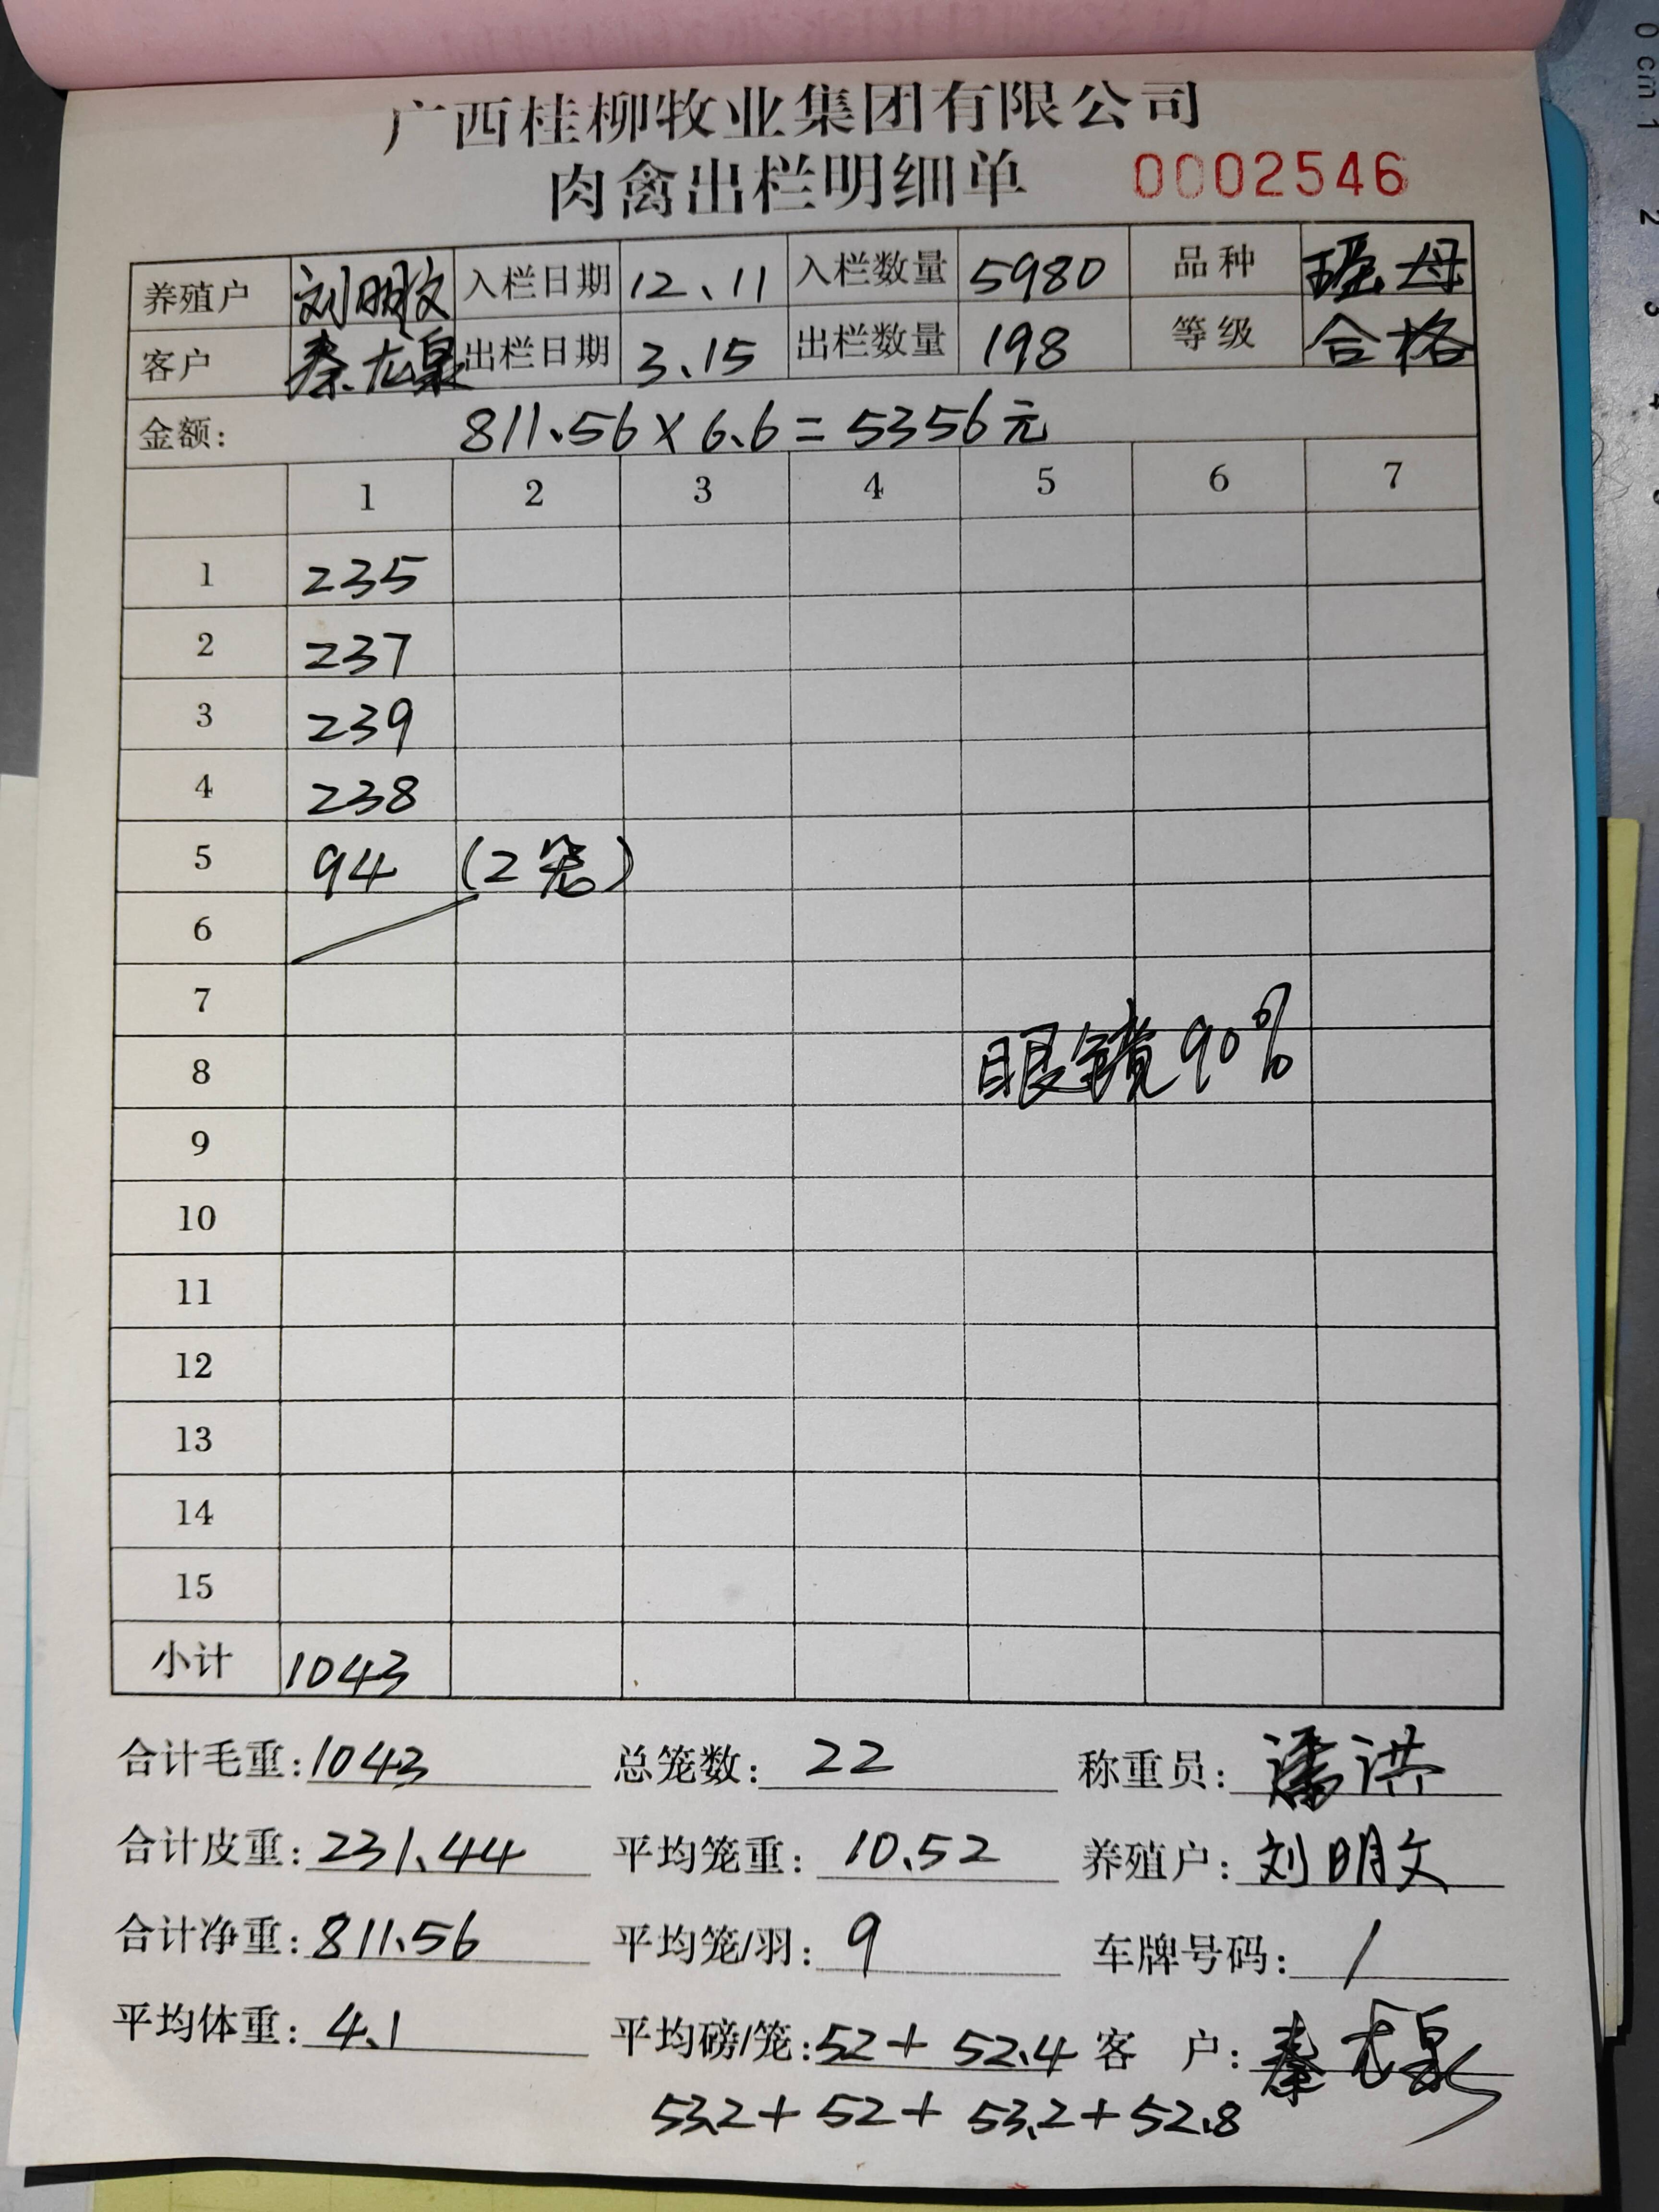 广西桂柳牧业集团有限公司
肉禽出栏明细单 0002546
养殖户 刘明文 入栏日期 12、11 入栏数量 5980 品种 瑶母
客户 秦龙泉 出栏日期 3、15 出栏数量 198 等级 合格
金额: 811.56×6.6=5356元
1 2 3 4 5 6 7
1 235
2 237
3 239
4 238
5 94 (2笼)
6
7
8 眼镜90%
9
10
11
12
13
14
15
小计 1043
合计毛重: 1043 总笼数: 22 称重员: 潘洪
合计皮重: 231.44 平均笼重: 10.52 养殖户: 刘明文
合计净重: 811.56 平均笼/羽: 9 车牌号码: /
平均体重: 4.1 平均磅/笼: 52+52.4 客户: 秦龙泉
53.2+52+53.2+52.8
0 cm 1
2
3
4